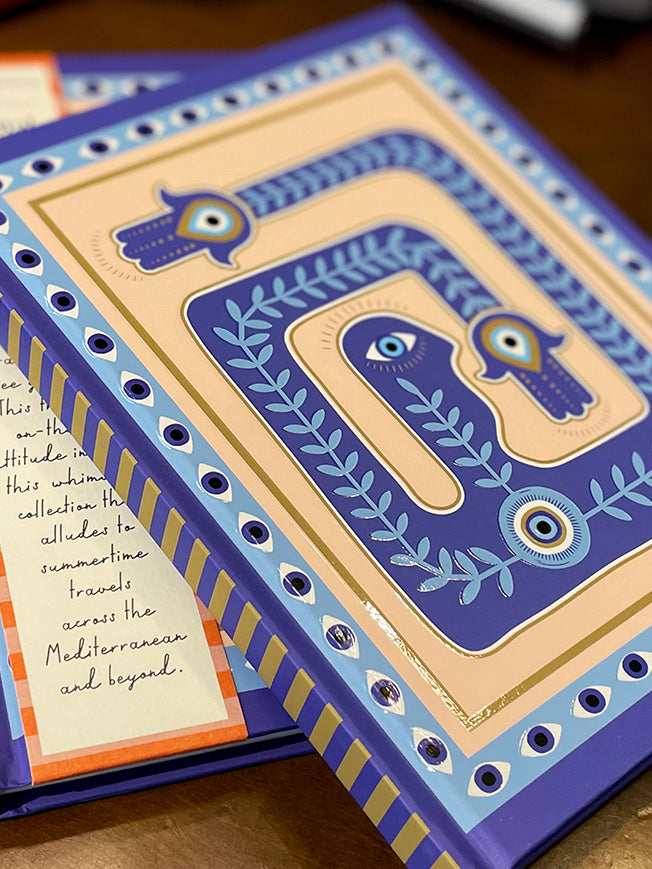 This
on-the
this whim
collection th
alludes to
summertime
travels
across the
Mediterranean
and beyond.